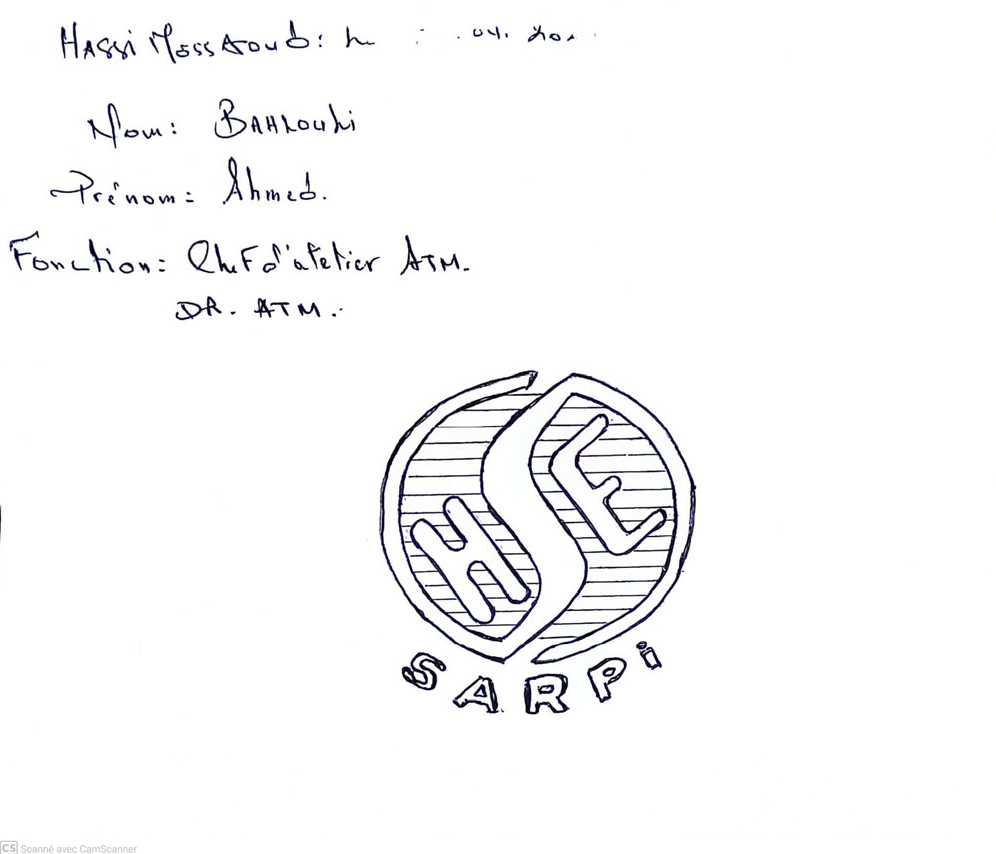 HASSi MESSAOUD: Le .04. 20
Nom: BAHLOULi
Prénom: Ahmed.
Fonction: Chef d'atelier ATM.
DR. ATM.
HSE
SARPi
CS Scanné avec CamScanner